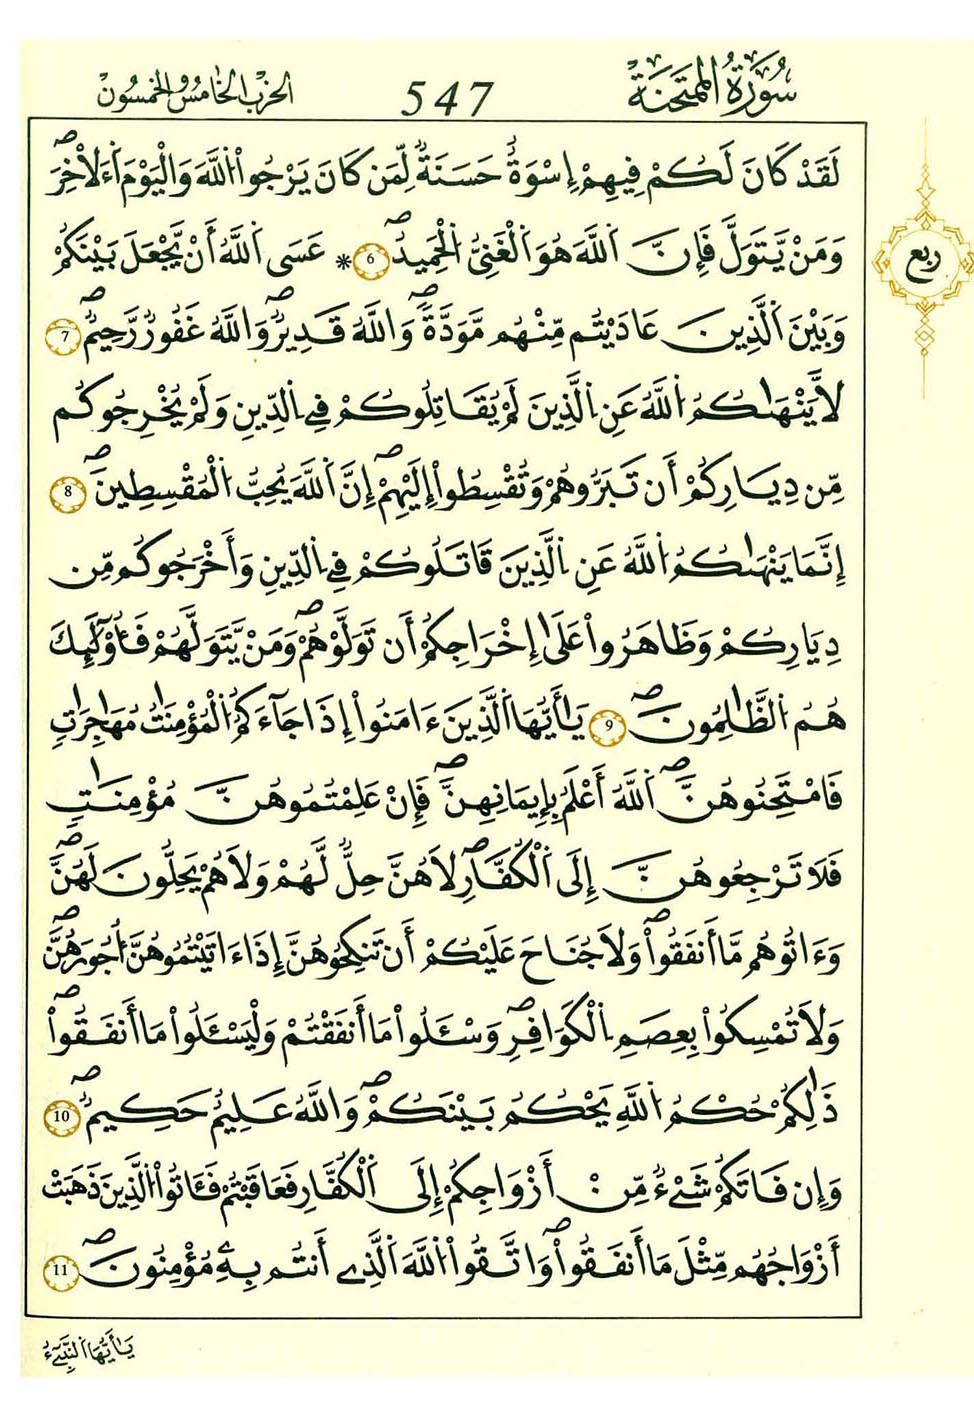 سُورَةُ الْمُمْتَحَنَةِ
547
الحزب الخامس والخمسون
لَقَدْ كَانَ لَكُمْ فِيهِمْ إِسْوَةٌ حَسَنَةٌ لِّمَن كَانَ يَرْجُوا اُللَّهَ وَالْيَوْمَ اَءَلَاخِرَۖ
وَمَنْ يَّتَوَلَّ فَإِنَّ اَللَّهَ هُوَ اَلْغَنِيُّ اُلْحَمِيدُۖ 6 * عَسَى اَللَّهُ أَنْ يَّجْعَلَ بَيْنَكُمْ
وَبَيْنَ اَلَّذِينَ عَادَيْتُم مِّنْهُم مَّوَدَّةًۖ وَاللَّهُ قَدِيرٌۖ وَاللَّهُ غَفُورٌ رَّحِيمٌۖ 7
لَّا يَنْهَىٰكُمُ اُللَّهُ عَنِ اِلَّذِينَ لَمْ يُقَاتِلُوكُمْ فِي اِلدِّينِ وَلَمْ يُخْرِجُوكُم
مِّن دِيَارِكُمْ أَن تَبَرُّوهُمْ وَتُقْسِطُواْ إِلَيْهِمْۖ إِنَّ اَللَّهَ يُحِبُّ اُلْمُقْسِطِينَۖ 8
إِنَّمَا يَنْهَىٰكُمُ اُللَّهُ عَنِ اِلَّذِينَ قَاتَلُوكُمْ فِي اِلدِّينِ وَأَخْرَجُوكُم مِّن
دِيَارِكُمْ وَظَاهَرُواْ عَلَىٰ إِخْرَاجِكُمْ أَن تَوَلَّوْهُمْۖ وَمَنْ يَّتَوَلَّهُمْ فَأُوْلَٰٓئِكَ
هُمُ اُلظَّٰلِمُونَۖ 9 يَٰأَيُّهَا اَلَّذِينَ ءَامَنُواْ إِذَا جَآءَكُمُ اُلْمُؤْمِنَٰتُ مُهَٰجِرَٰتٖ
فَامْتَحِنُوهُنَّۖ اَللَّهُ أَعْلَمُ بِإِيمَانِهِنَّۖ فَإِنْ عَلِمْتُمُوهُنَّ مُؤْمِنَٰتٖ
فَلَا تَرْجِعُوهُنَّ إِلَى اَلْكُفَّارِۖ لَا هُنَّ حِلٌّ لَّهُمْ وَلَا هُمْ يَحِلُّونَ لَهُنَّۖ
وَءَاتُوهُم مَّا أَنفَقُواْۖ وَلَا جُنَاحَ عَلَيْكُمْ أَن تَنكِحُوهُنَّ إِذَا ءَاتَيْتُمُوهُنَّ أُجُورَهُنَّۖ
وَلَا تُمْسِكُواْ بِعِصَمِ اِلْكَوَافِرِۖ وَسْـَٔلُواْ مَا أَنفَقْتُمْ وَلْيَسْـَٔلُواْ مَا أَنفَقُواْۖ
ذَٰلِكُمْ حُكْمُ اُللَّهِ يَحْكُمُ بَيْنَكُمْۖ وَاللَّهُ عَلِيمٌ حَكِيمٌۖ 10
وَإِن فَاتَكُمْ شَيْءٌ مِّنْ أَزْوَاجِكُمْ إِلَى اَلْكُفَّارِ فَعَاقَبْتُمْ فَـَٔاتُواْ اُلَّذِينَ ذَهَبَتْ
أَزْوَاجُهُم مِّثْلَ مَا أَنفَقُواْۖ وَاتَّقُواْ اُللَّهَ اَلَّذِي أَنتُم بِهِۦ مُؤْمِنُونَۖ 11
ربع
يَٰأَيُّهَا اَلنَّبِيٓءُ